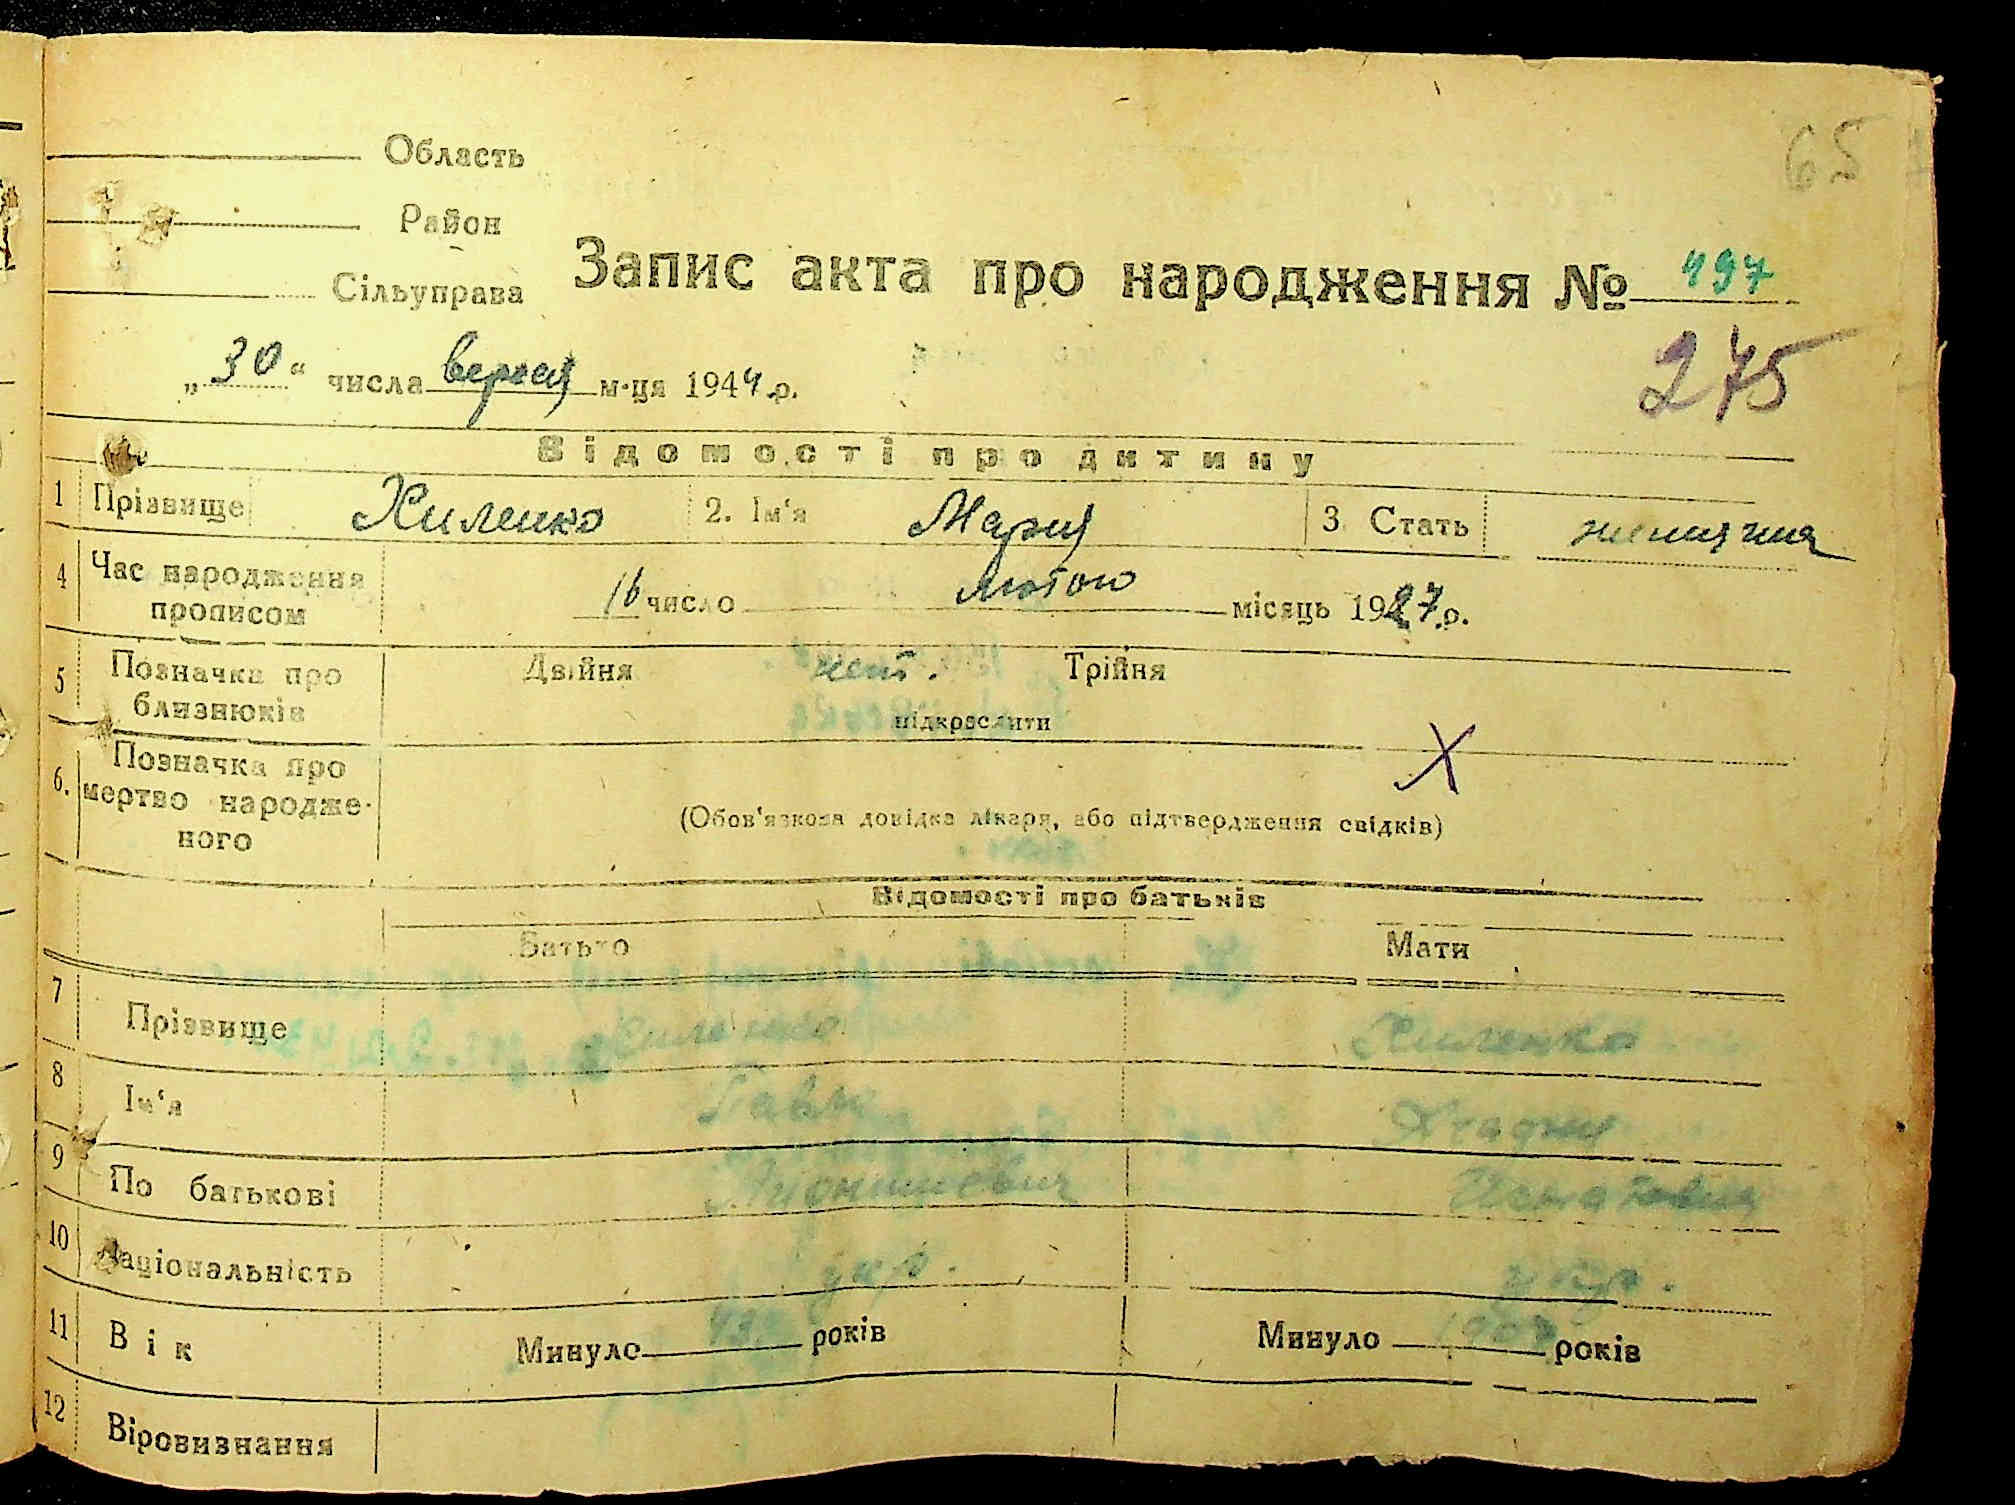 65
Область
Район
Сільуправа
Запис акта про народження № 497
275
„30“ числа вересня м-ця 1944 р.
Відомості про дитину
1 Прізвище Хиленко 2. Ім'я Мария 3. Стать
4 Час народження прописом 16 число лютого місяць 1927 р.
5 Позначка про близнюків Двійня Трійня
підкреслити
6. Позначка про мертво народженого
(Обов'язкова довідка лікаря, або підтвердження свідків)
Відомості про батьків
Батько Мати
7 Прізвище Хиленко Хиленко
8 Ім'я Павло
9 По батькові
10 Національність укр. укр.
11 Вік Минуло років Минуло років
12 Віровизнання